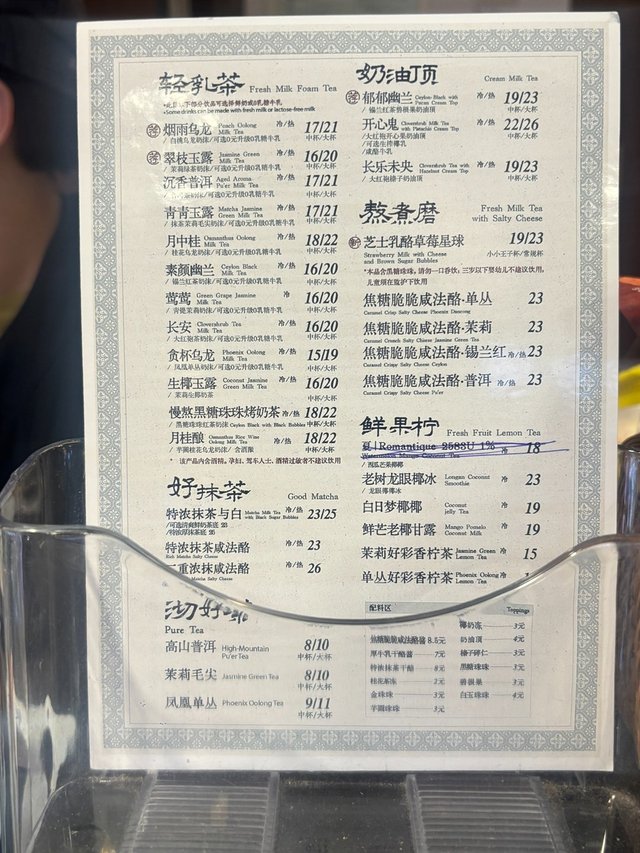 轻乳茶 Fresh Milk Foam Tea
•Some drinks can be made with fresh milk or lactose-free milk
烟雨乌龙 Peach Oolong Milk Tea 冷/热 17/21
/白桃乌龙奶抹/可选0元升级0乳糖牛乳 中杯/大杯
翠枝玉露 Jasmine Green Milk Tea 冷/热 16/20
/茉莉绿茶奶抹/可选0元升级0乳糖牛乳 中杯/大杯
沉香普洱 Aged Aroma Pu'er Milk Tea 冷/热 17/21
奶抹/可选0元升级0乳糖牛乳 中杯/大杯
青青玉露 Matcha Jasmine Green Milk Tea 冷/热 17/21
/抹茶茉莉毛尖奶抹/可选0元升级0乳糖牛乳 中杯/大杯
月中桂 Osmanthus Oolong Milk Tea 冷/热 18/22
/桂花乌龙奶抹/可选0元升级0乳糖牛乳 中杯/大杯
素颜幽兰 Ceylon Black Milk Tea 冷/热 16/20
/锡兰红茶奶抹/可选0元升级0乳糖牛乳 中杯/大杯
莺莺 Green Grape Jasmine Milk Tea 冷 16/20
/青提茉莉奶抹/可选0元升级0乳糖牛乳 中杯/大杯
长安 Clovershrub Tea Milk Tea 冷/热 16/20
/大红袍茶奶抹/可选0元升级0乳糖牛乳 中杯/大杯
贪杯乌龙 Phoenix Oolong Milk Tea 冷/热 15/19
/凤凰单丛奶抹/可选0元升级0乳糖牛乳 中杯/大杯
生椰玉露 Coconut Jasmine Green Milk Tea 冷/热 16/20
/茉莉生椰奶茶 中杯/大杯
慢熬黑糖珠珠烤奶茶 冷/热 18/22
/黑糖珠珠红茶奶抹 Ceylon Black with Black Bubbles 中杯/大杯
月桂酿 Osmanthus Rice Wine Oolong Milk Tea 冷/热 18/22
/芋圆桂花乌龙奶抹/含酒酿 中杯/大杯
该产品内含酒精，孕妇、驾车人士、酒精过敏者不建议饮用
好抹茶 Good Matcha
特浓抹茶与白 Matcha Milk Tea with Black Sugar Bubbles 冷/热 23/25
/可选清爽鲜奶茶底 23
/特浓厚抹茶底 25
特浓抹茶咸法酪 冷/热 23
Rich Matcha Salty Cheese
重浓抹茶咸法酪 冷/热 26
Matcha Salty Cheese
沏好茶
Pure Tea
高山普洱 High-Mountain Pu'er Tea 8/10
中杯/大杯
茉莉毛尖 Jasmine Green Tea 8/10
中杯/大杯
凤凰单丛 Phoenix Oolong Tea 9/11
中杯/大杯
奶油顶 Cream Milk Tea
郁郁幽兰 Ceylon Black with Pecan Cream Top 冷/热 19/23
/锡兰红茶碧根果奶油顶 中杯/大杯
开心鬼 Clovershrub Milk Tea with Pistachio Cream Top 冷/热 22/26
/大红袍开心果奶油顶 中杯/大杯
/可选生椰乳
/咸酪牛乳
长乐未央 Clovershrub Tea with Hazelnut Cream Top 冷/热 19/23
/大红袍榛子奶油顶 中杯/大杯
熬煮磨 Fresh Milk Tea with Salty Cheese
芝士乳酪草莓星球 19/23
Strawberry Milk with Cheese and Brown Sugar Bubbles 小小王子杯/常规杯
*本品含黑糖珠珠，请勿一口吞饮；三岁以下婴幼儿不建议饮用，
儿童须在监护下饮用
焦糖脆脆咸法酪·单丛 23
Caramel Crisp Salty Cheese Phoenix Dancong
焦糖脆脆咸法酪·茉莉 23
Caramel Crunch Salty Cheese Jasmine Green Tea
焦糖脆脆咸法酪·锡兰红 冷/热 23
Caramel Crisp Salty Cheese Ceylon
焦糖脆脆咸法酪·普洱 冷/热 23
Caramel Crisp Salty Cheese Pu'er
鲜果柠 Fresh Fruit Lemon Tea
夏|Romantique 2583U 1% 冷 18
Watermelon Mango Coconut Tea
/西瓜芒果椰椰
老树龙眼椰冰 Longan Coconut Smoothie 冷 23
/龙眼椰椰冰
白日梦椰椰 Coconut Jelly Tea 冷 19
鲜芒老椰甘露 Mango Pomelo Coconut Milk 冷 19
茉莉好彩香柠茶 Jasmine Green Lemon Tea 冷 15
单丛好彩香柠茶 Phoenix Oolong Lemon Tea 冷
配料区 Toppings
椰奶冻 3元
焦糖脆脆咸法酪酱 8.5元 奶油顶 4元
厚牛乳干酪酱 7元 榛子碎仁 3元
特浓抹茶干酪 8元 黑糖珠珠 3元
桂花茶冻 2元 碧根果 3元
金珠珠 3元 白玉珠珠 4元
芋圆珠珠 3元